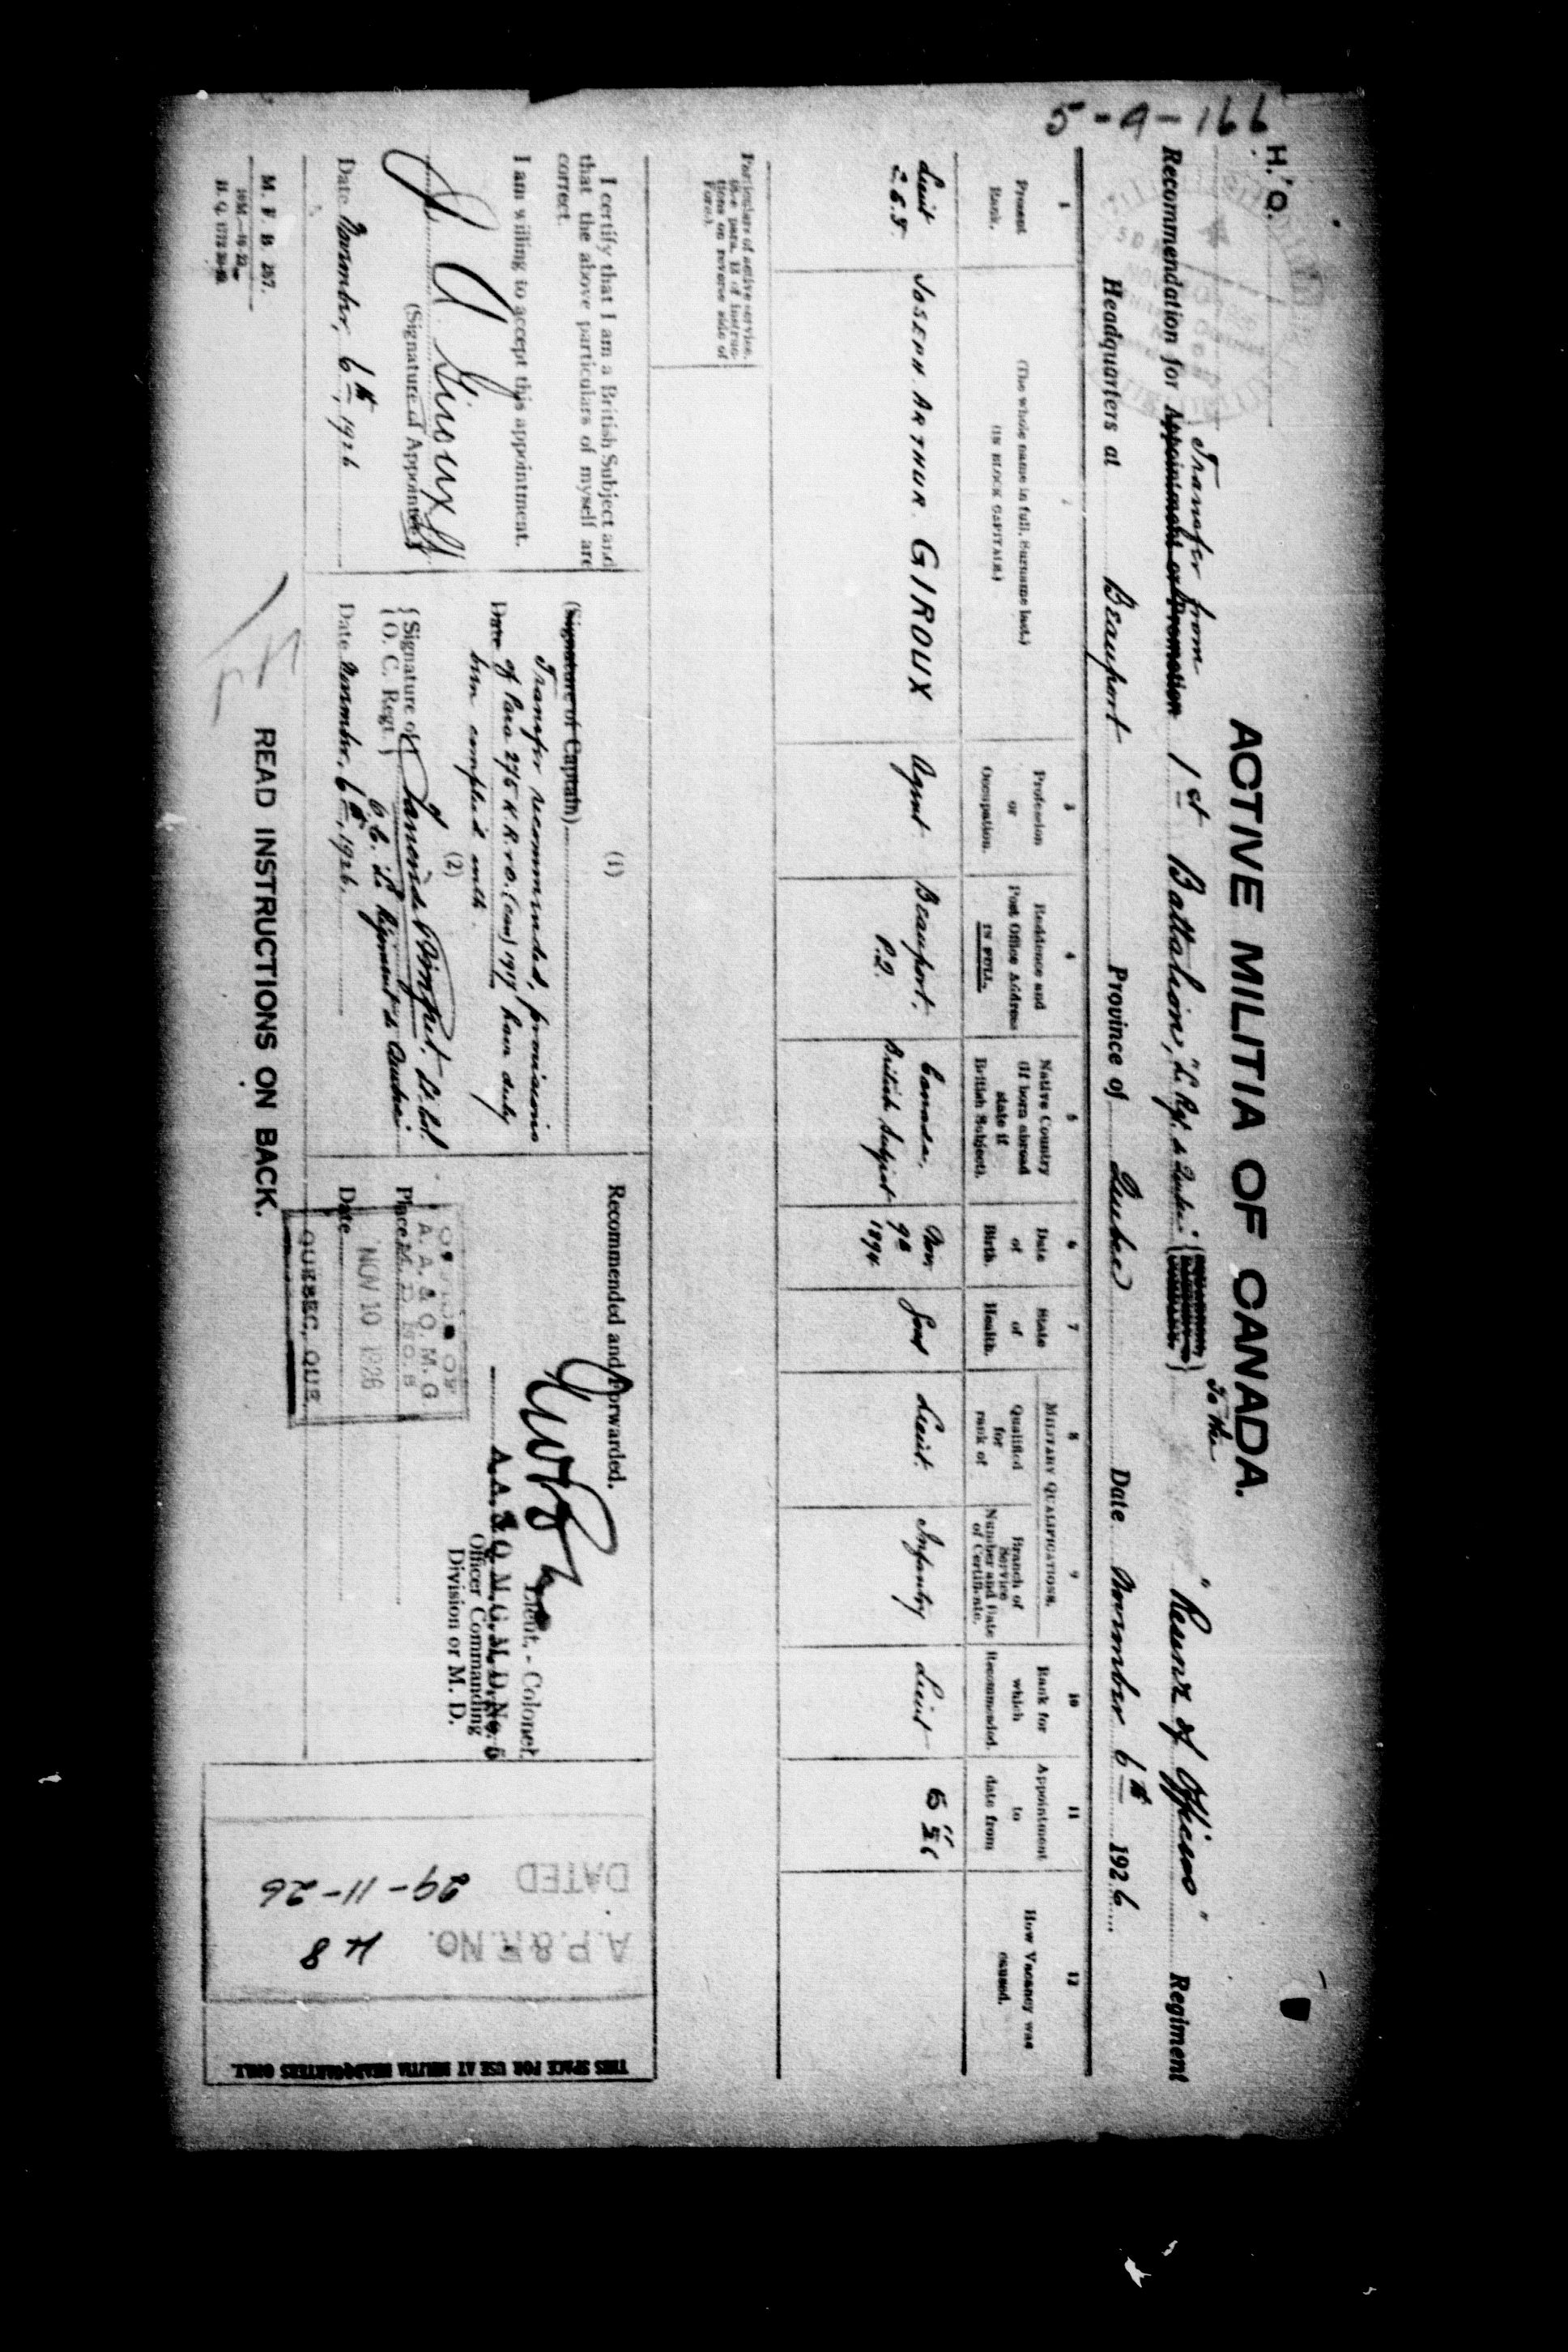 5-9-166
H.Q.
ACTIVE MILITIA OF CANADA.
Transfer from
To the
Recommendation for Appointment or Promotion 1st Battalion, "Le Regt. de Quebec" "Reserve of Officers" Regiment
Headquarters at Beauport Province of Quebec Date November 6th 1926
1
Present Rank.
2
(The whole name in full, Surname last.)
(IN BLOCK CAPITALS.)
3
Profession or Occupation.
4
Residence and Post Office Address IN FULL.
5
Native Country (if born abroad state if British Subject).
6
Date of Birth.
7
State of Health.
MILITARY QUALIFICATIONS.
8
Qualified for rank of
9
Branch of Service Number and Date of Certificate.
10
Rank for which Recommended.
11
Appointment to date from
12
How Vacancy was caused.
Lieut
JOSEPH ARTHUR GIROUX
Agent
Beauport, P.Q.
Canada, British Subject
Nov 9th 1894
Good
Lieut.
Infantry
Lieut
6 11 26
Particulars of active service. (See para. 13 of Instructions on reverse side of Form.)
I certify that I am a British Subject and
that the above particulars of myself are
correct.
I am willing to accept this appointment.
J A Giroux
(Signature of Appointee)
Date November, 6th, 1926
(1)
(Signature of Captain)
Transfer recommended, provisions
Date of Para 275 K.R.&O. (Can) 1917 have duly
been complied with.
(2)
Signature of O. C. Regt. Lt. Col.
O.C. Le Régiment de Québec
Date November, 6th, 1926.
Recommended and Forwarded.
Lieut. - Colonel,
A.A. & Q.M.G. M.D. No. 5
Officer Commanding
Division or M. D.
Place
Date
OFFICE OF
A. A. & Q. M. G
M. D. NO. 5
NOV 10 1926
QUEBEC, QUE.
A.P.&R. NO. 48
DATED 29-11-26
THIS SPACE FOR USE AT MILITIA HEADQUARTERS ONLY.
M. F. B. 257.
READ INSTRUCTIONS ON BACK.